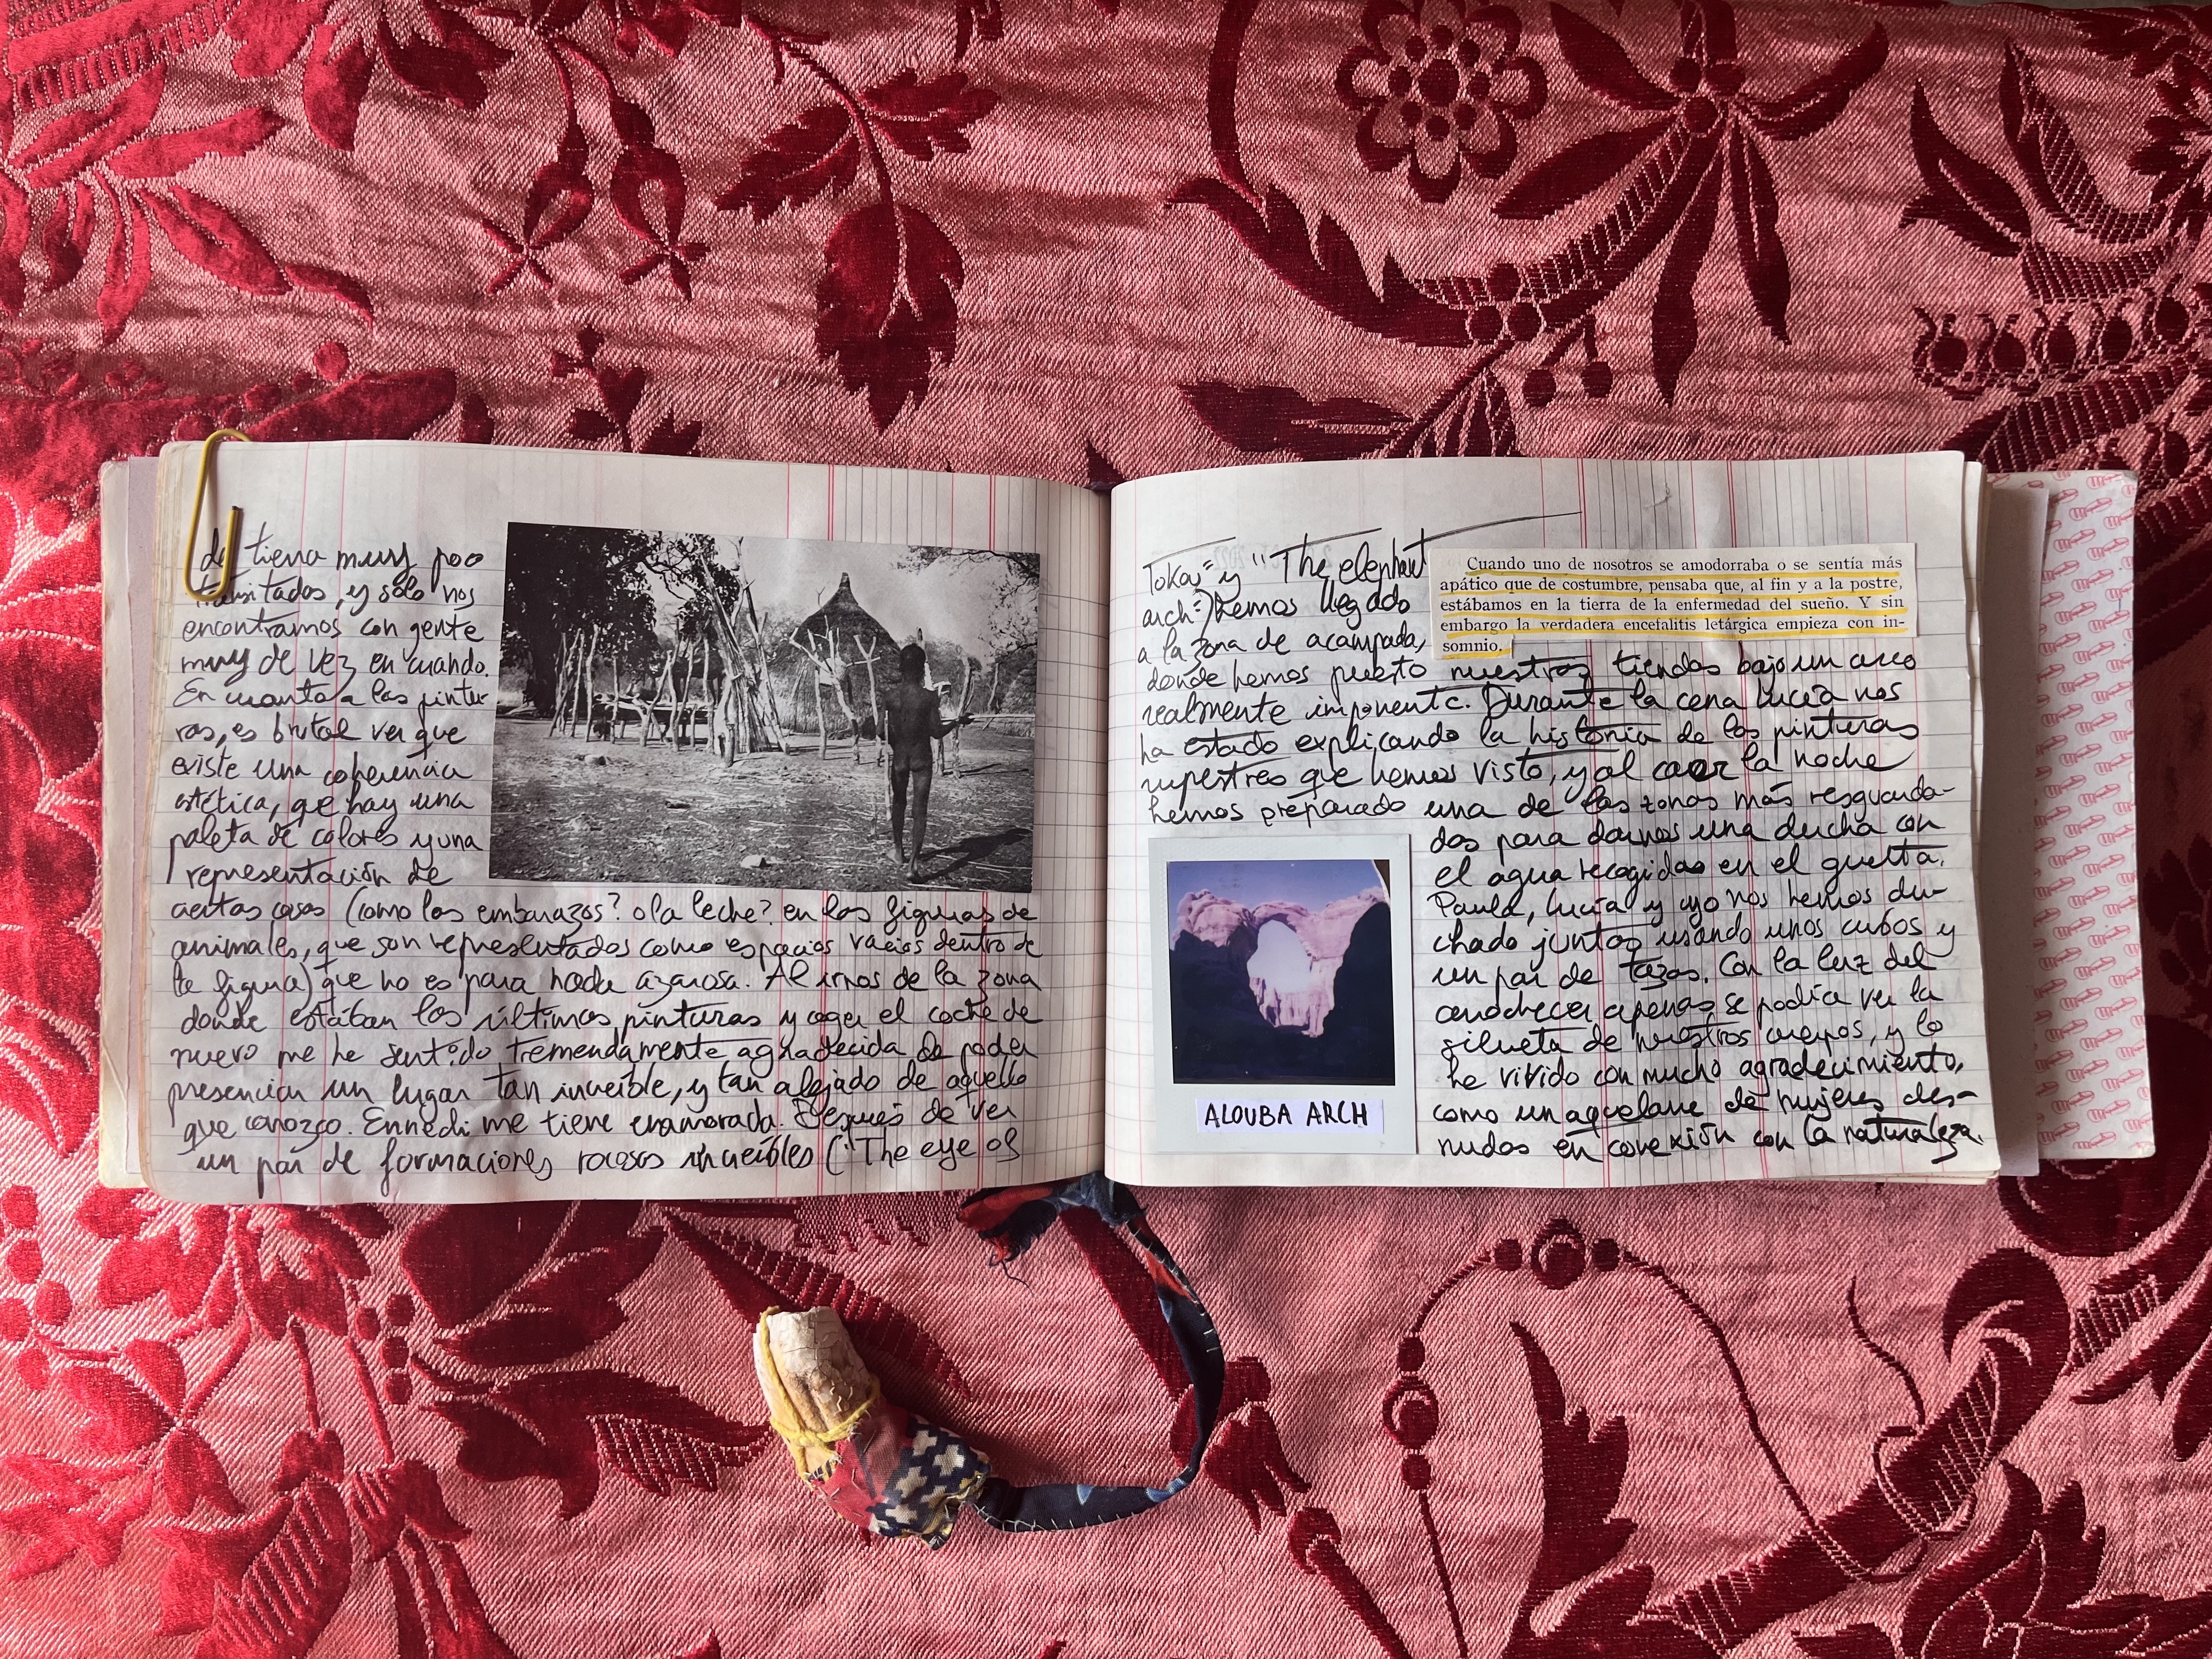 de tierra muy poco
transitados, y sólo nos
encontramos con gente
muy de vez en cuando.
En cuanto a las pintu-
ras, es brutal ver que
existe una coherencia
estética, que hay una
paleta de colores y una
representación de
ciertas cosas (como los embarazos? o la leche? en las figuras de
animales, que son representados como espacios vacíos dentro de
la figura) que no es para nada azarosa. Al irnos de la zona
donde estaban las últimas pinturas y coger el coche de
nuevo me he sentido tremendamente agradecida de poder
presenciar un lugar tan increíble, y tan alejado de aquello
que conozco. Ennedi me tiene enamorada. Después de ver
un par de formaciones rocosas increíbles ("The eye of
Tokay" y "The elephant
arch") hemos llegado
a la zona de acampada,
donde hemos puesto nuestras tiendas bajo un arco
realmente imponente. Durante la cena Lucía nos
ha estado explicando la historia de las pinturas
rupestres que hemos visto, y al caer la noche
hemos preparado una de las zonas más resguarda-
das para darnos una ducha con
el agua recogida en el guelta.
Paula, Lucía y yo nos hemos du-
chado juntas usando unos cubos y
un par de tazas. Con la luz del
anochecer apenas se podía ver la
silueta de nuestros cuerpos, y lo
he vivido con mucho agradecimiento,
como un aquelarre de mujeres des-
nudas en conexión con la naturaleza.
Cuando uno de nosotros se amodorraba o se sentía más
apático que de costumbre, pensaba que, al fin y a la postre,
estábamos en la tierra de la enfermedad del sueño. Y sin
embargo la verdadera encefalitis letárgica empieza con in-
somnio.
ALOUBA ARCH